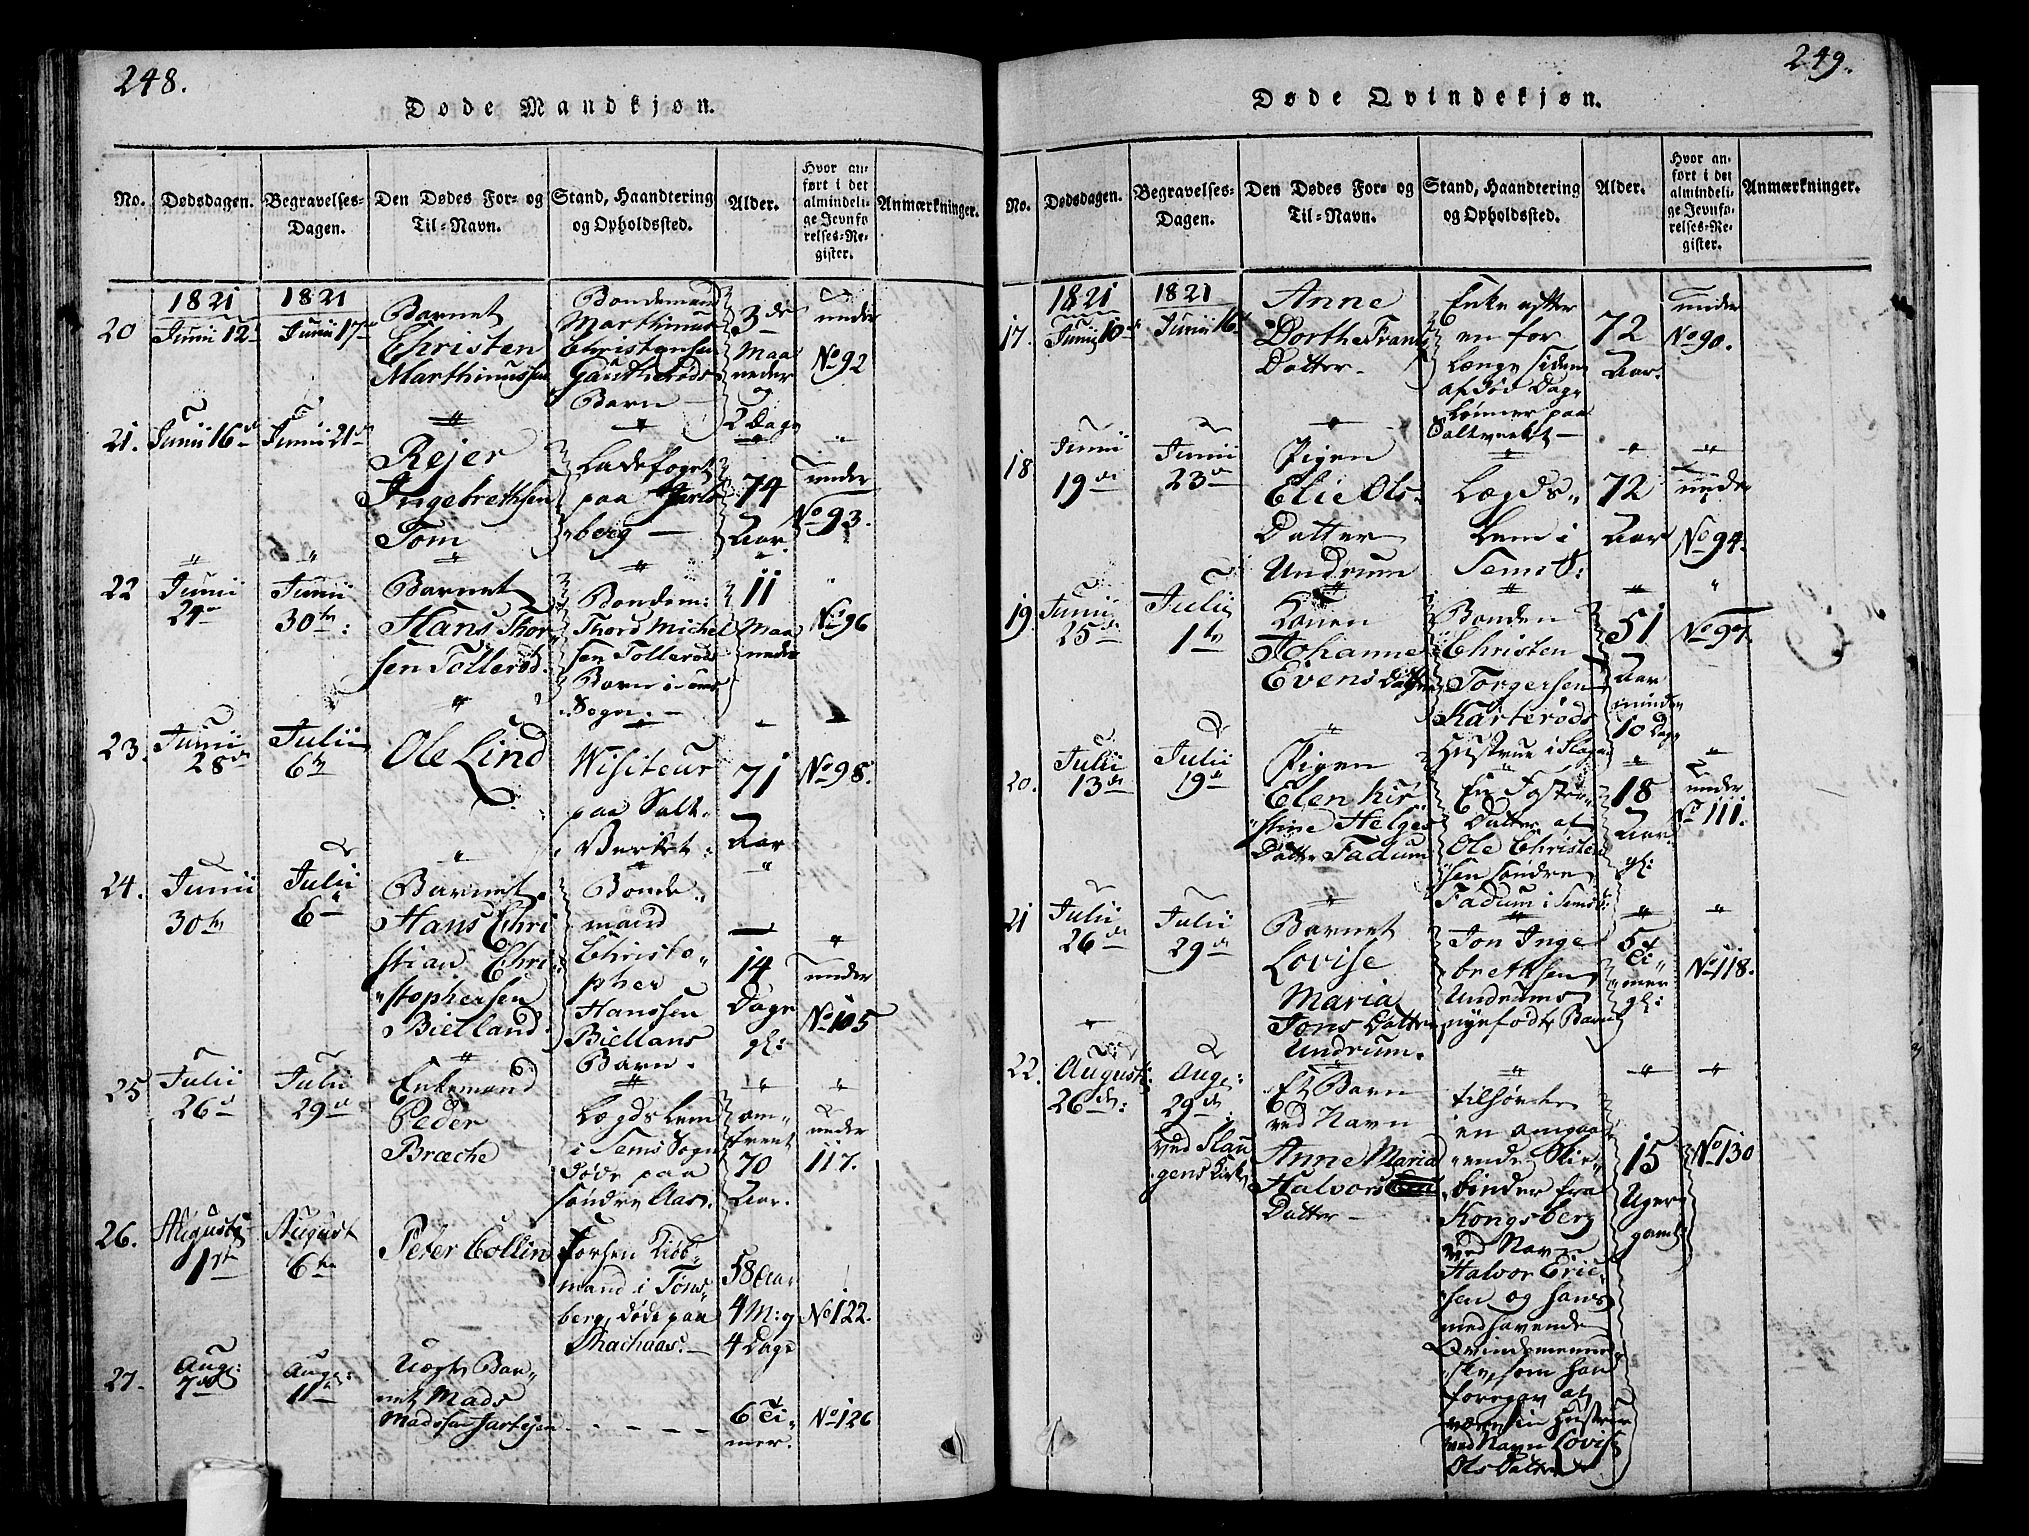 248.
Døde Mandkjøn.
No.
Dødsdagen.
Begravelses-
Dagen.
Den Dødes For- og
Til-Navn.
Stand, Haandtering
og Opholdssted.
Alder.
Hvor an-
ført i det
almindeli-
ge Jevnfø-
relses-Re-
gister.
Anmærkninger.
20
1821
Junii 12
1821
Junii 17
Barnet
Christen
Marthinussen
Bondemand
Marthinus
Christensen
Barn
3
Maa
neder
og
2 Dage
under
No 92
21.
Junii 16
Junii 21
Rejer
Ingebrethsen
Tom
Ladefoget
paa Jarls
berg
74
Aar
under
No 93.
22
Junii
24
Junii
30te:
Barnet
Hans Thor
sen Tollerød.
Bondem:
Thord Michel
sen Tollerøds
Barn i Sems
Sogn.
11
Maa
neder
No 96
23.
Junii
28
Julii
6te
Ole Lind
Visiteur
paa Salt-
Verket.
71
Aar
No 98.
24.
Junii
30te
Julii
6
Barnet
Hans Chri
stian Chri-
stophersen
Bielland.
Bonde
mand
Christo-
pher
Hanssen
Biellans
Barn.
14
Dage
gl:
under
No 105
25
Julii
26
Julii
29
Enkemand
Peder
Bræche
Lægds Lem
i Sems Sogn
døde paa
søndre Aas.
om-
trent
70
Aar.
under
117.
26.
Augusti
1st
August
6te
Peter Collin
Forhen Kiøb-
mand i Tøns-
berg, døde paa
58 Aar
4 M: og
4 Dage
No 122.
27.
Aug:
7de
Aug:
11te
Uægte Bar-
net Mads
Madssen
6 Ti-
mer.
No 126
249.
Døde Qvindekjøn.
No.
Dødsdagen.
Begravelses-
Dagen.
Den Dødes For- og
Til-Navn.
Stand, Haandtering
og Opholdssted.
Alder.
Hvor an-
ført i det
almindeli-
ge Jevnfø-
relses-Re-
gister.
Anmærkninger.
17.
1821
Junii 10
1821
Junii 16
Anne
Dorthe Frans
Datter
Enke efter
en for
længe siden
afdød Dag-
lønner paa
Saltverket
72
Aar.
under
No 90.
18
Junii
19de
Junii
23de
Pigen
Elie Ols-
Datter
Undrum
Lægds-
Lem i
Sems S:
72
Aar
under
No 94.
19.
Junii
25de
Julii
1te
Konen
Johanne
Evens Datter
Bonden
Christen
Torgersen
Karterøds
Hustrue i Slagen
51
Aar
minder
10 Dage
No 97.
20.
Julii
13de
Julii
19de
Pigen
Elen Kir-
stine Helges
Datter Fadum
En Foster-
Datter af
Ole Christen
sen søndre
Fadum i Sems S:
18
Aar
gl:
under
No 111.
21
Julii
26de
Julii
29de
Barnet
Lovise
Maria
Jons Datter
Undrum.
Jon Inge
brethsen
Undrums
nyefødte Barn
5
Ti-
mer
gl:
No 118.
22.
Augusti
26de:
Aug:
29de
ved Slau
gens Kirke
Et Barn
ved Navn
Anne Maria
Halvors
Datter
tilhørte
en omgaa-
ende Skie-
binder fra
Kongsberg
ved Navn
Halvor Eric-
sen og hans
medhavende
Qvindemenne-
ske, som han
foregav at
være sin Hustrue
ved Navn Lovise
Ols Datter
15
Uger
gaml:
No 130